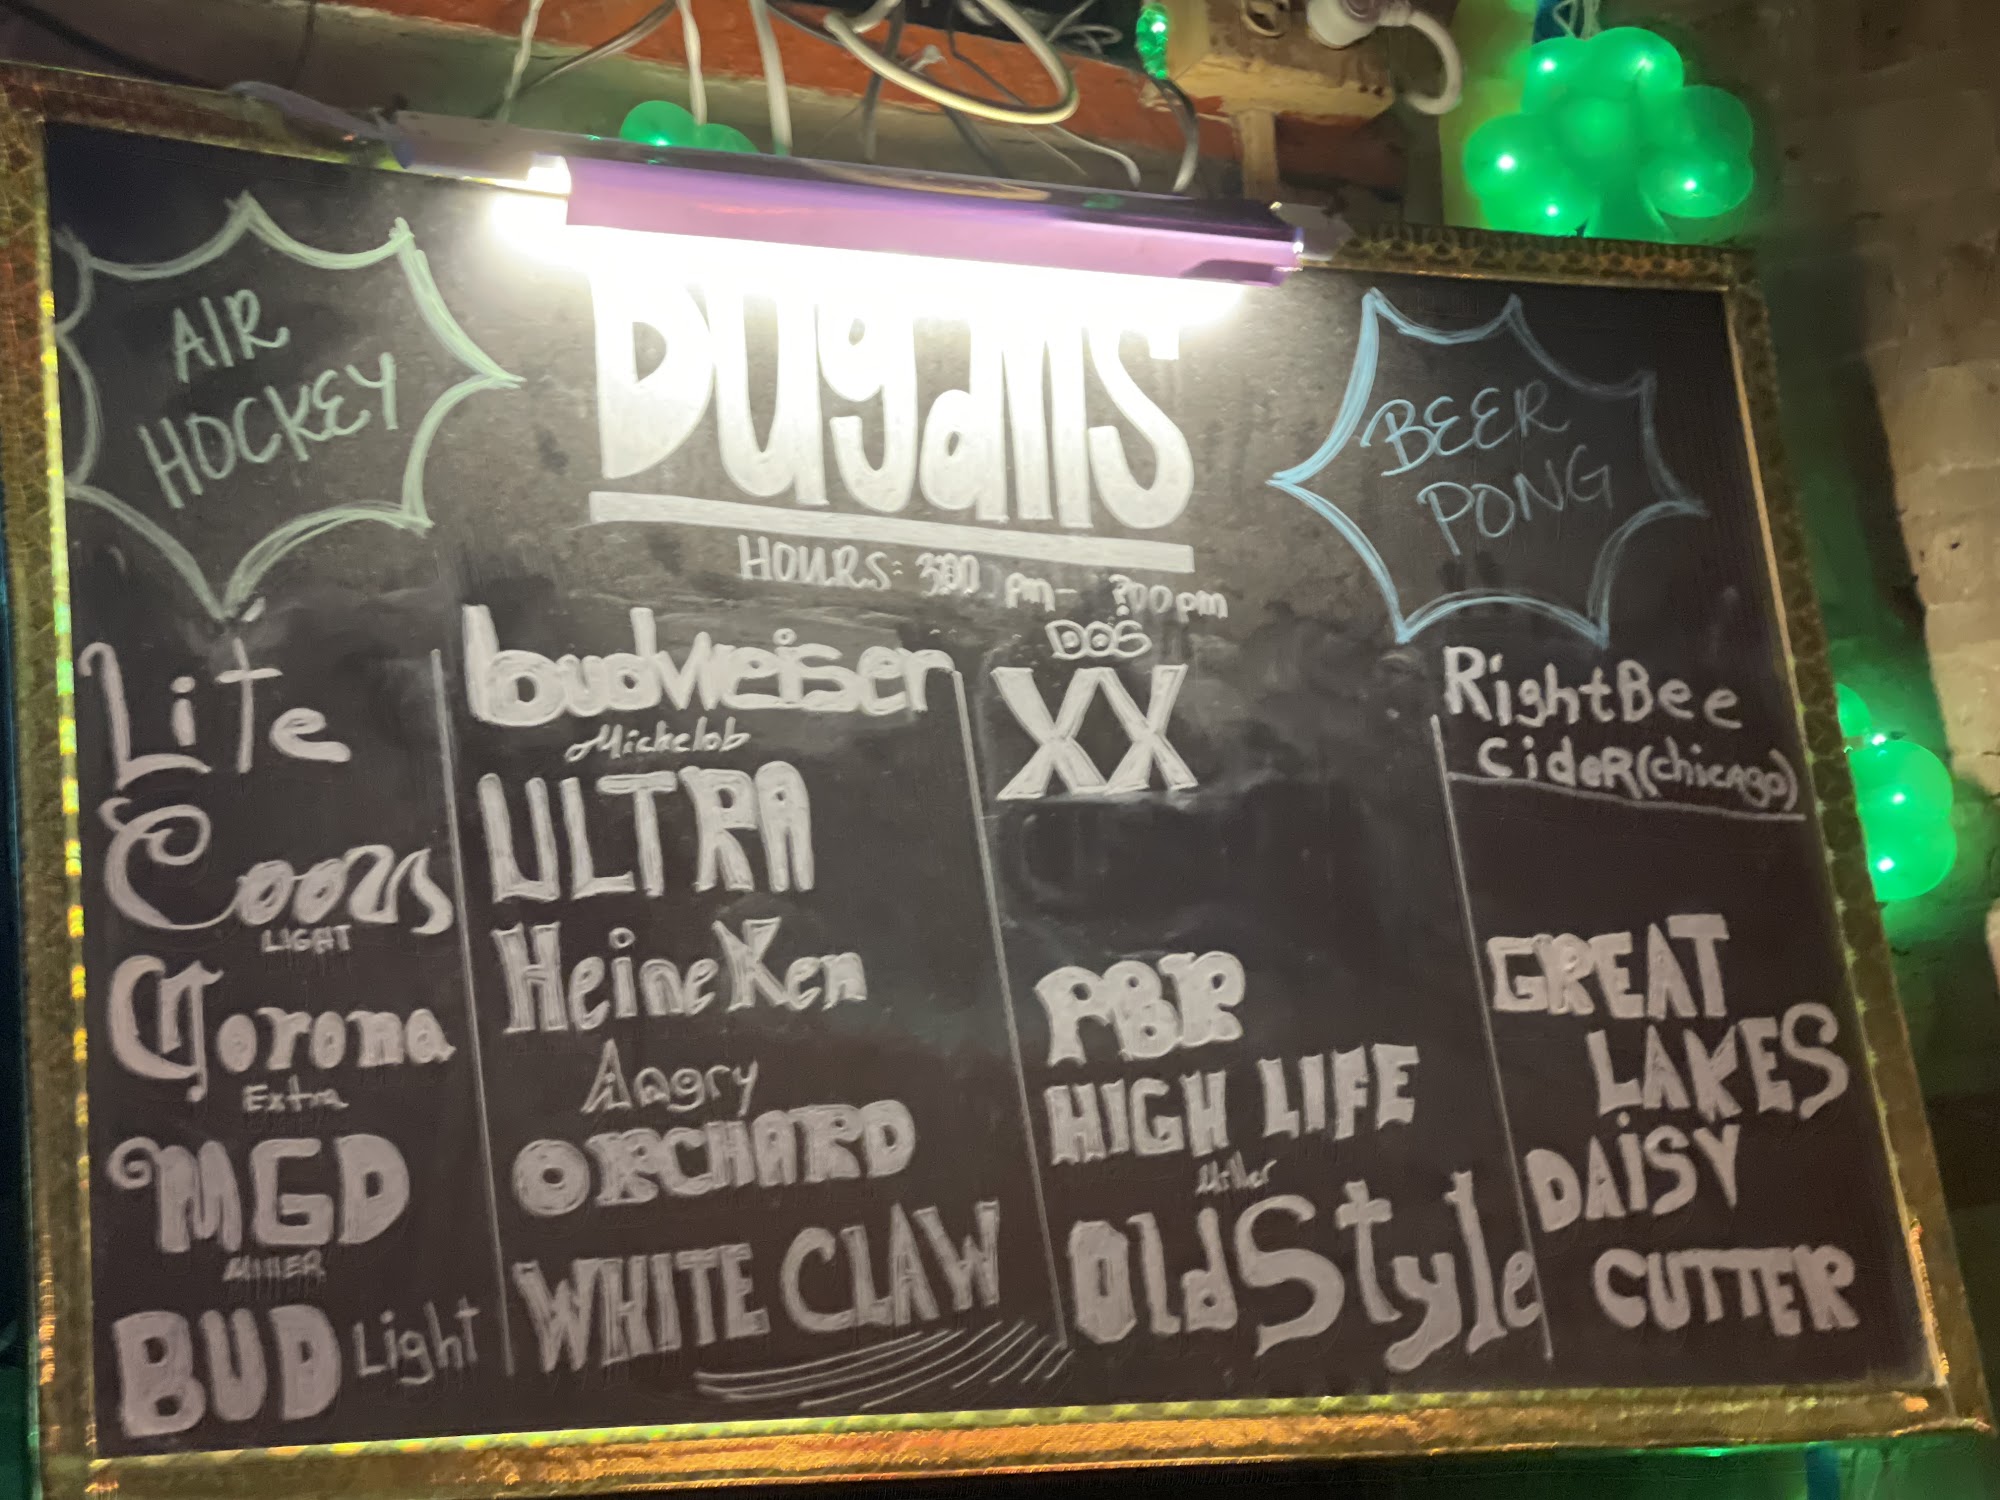 Dugans
AIR
HOCKEY
BEER
PONG
HOURS: 3:00 pm - ?:00 pm
Lite
Coors
LIGHT
Corona
Extra
MGD
MILLER
BUD Light
budweiser
Michelob
ULTRA
HeineKen
Angry
ORCHARD
WHITE CLAW
DOS
XX
PBR
HIGH LIFE
Miller
OldStyle
RightBee
CideR (chicago)
GREAT
LAKES
DAiSY
CUTTER